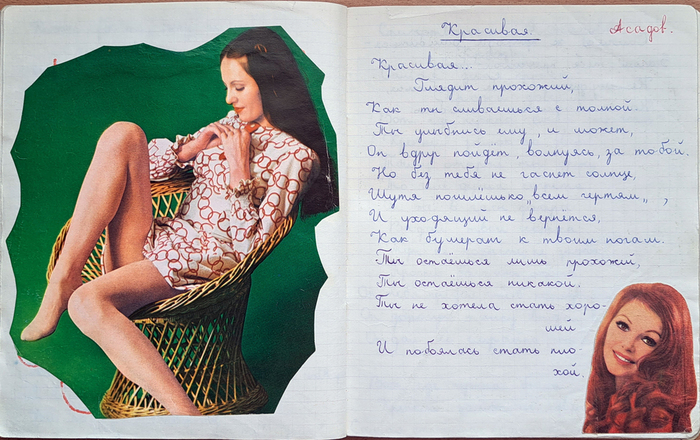 Красивая
Асадов.
Красивая...
Глядит прохожий,
Как ты сливаешься с толпой.
Ты улыбнись ему, и может,
Он вдруг пойдёт, волнуясь, за тобой.
Но без тебя не гаснет солнце,
Шутя пошлёшь ко „всем чертям",
И уходящий не вернётся,
Как бумеранг к твоим ногам.
Ты остаёшься лишь прохожей,
Ты остаёшься никакой.
Ты не хотела стать хоро-
шей
И побоялась стать пло-
хой.